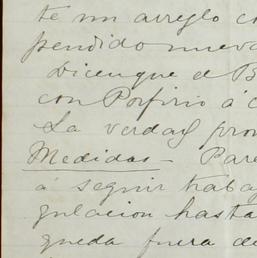 te un arreglo co
pendido nueva
Dicen que el B
con Porfirio á c
La verdad pron
Medidas - Pare
á seguir traba
gulacion hasta
queda fuera de